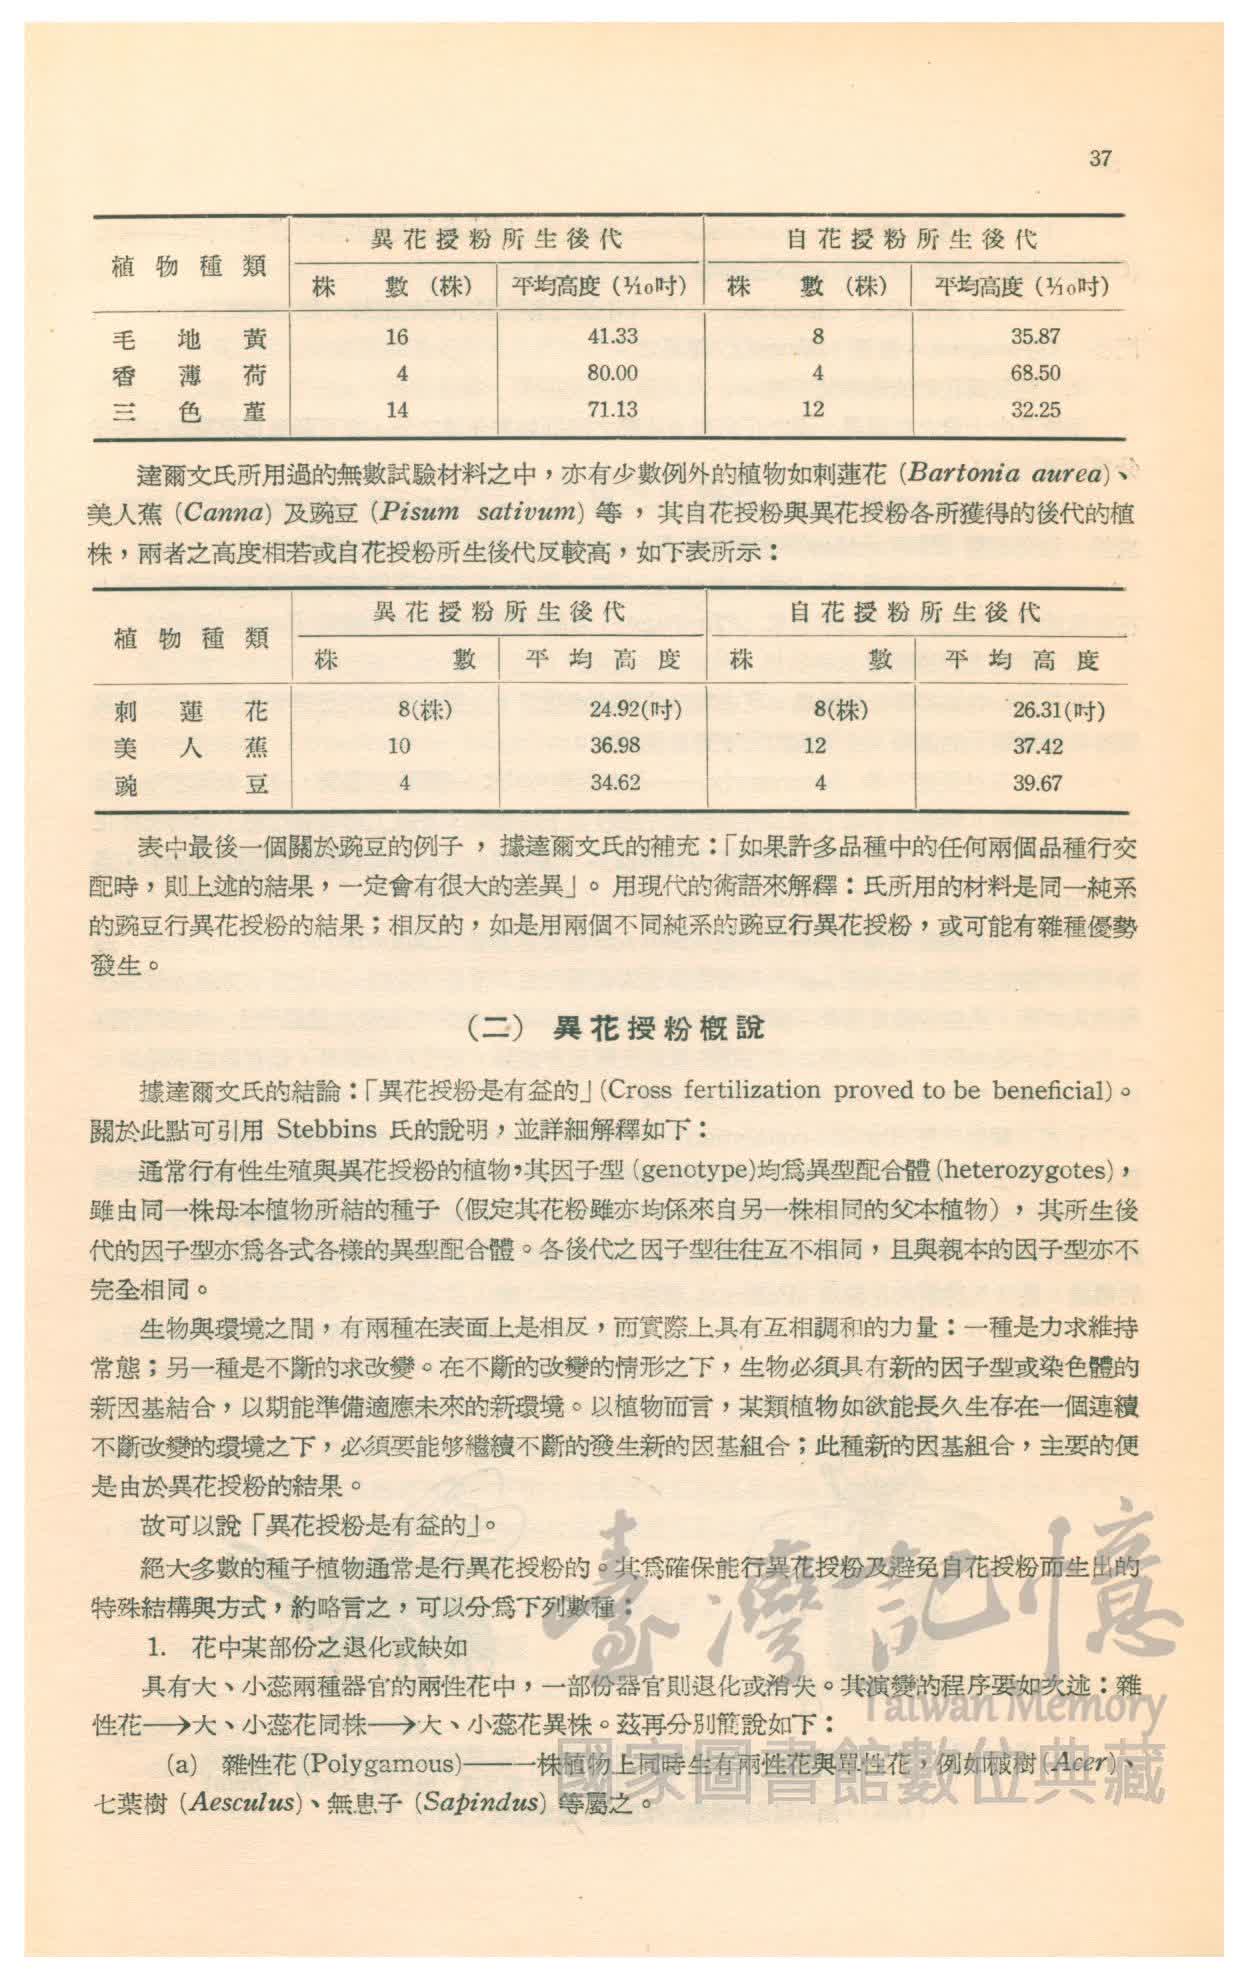 37
植物種類 異花授粉所生後代 自花授粉所生後代
株 數 (株) 平均高度 (1/10吋) 株 數 (株) 平均高度 (1/10吋)
毛地黃 16 41.33 8 35.87
香薄荷 4 80.00 4 68.50
三色菫 14 71.13 12 32.25
達爾文氏所用過的無數試驗材料之中，亦有少數例外的植物如刺蓮花 (Bartonia aurea)、
美人蕉 (Canna) 及豌豆 (Pisum sativum) 等，其自花授粉與異花授粉各所獲得的後代的植
株，兩者之高度相若或自花授粉所生後代反較高，如下表所示：
植物種類 異花授粉所生後代 自花授粉所生後代
株 數 平均高度 株 數 平均高度
刺蓮花 8(株) 24.92(吋) 8(株) 26.31(吋)
美人蕉 10 36.98 12 37.42
豌豆 4 34.62 4 39.67
表中最後一個關於豌豆的例子，據達爾文氏的補充：「如果許多品種中的任何兩個品種行交
配時，則上述的結果，一定會有很大的差異」。用現代的術語來解釋：氏所用的材料是同一純系
的豌豆行異花授粉的結果；相反的，如是用兩個不同純系的豌豆行異花授粉，或可能有雜種優勢
發生。
(二) 異花授粉概說
據達爾文氏的結論：「異花授粉是有益的」(Cross fertilization proved to be beneficial)。
關於此點可引用 Stebbins 氏的說明，並詳細解釋如下：
通常行有性生殖與異花授粉的植物，其因子型 (genotype)均爲異型配合體 (heterozygotes)，
雖由同一株母本植物所結的種子（假定其花粉雖亦均係來自另一株相同的父本植物），其所生後
代的因子型亦爲各式各樣的異型配合體。各後代之因子型往往互不相同，且與親本的因子型亦不
完全相同。
生物與環境之間，有兩種在表面上是相反，而實際上具有互相調和的力量：一種是力求維持
常態；另一種是不斷的求改變。在不斷的改變的情形之下，生物必須具有新的因子型或染色體的
新因基結合，以期能準備適應未來的新環境。以植物而言，某類植物如欲能長久生存在一個連續
不斷改變的環境之下，必須要能够繼續不斷的發生新的因基組合；此種新的因基組合，主要的便
是由於異花授粉的結果。
故可以說「異花授粉是有益的」。
絕大多數的種子植物通常是行異花授粉的。其爲確保能行異花授粉及避免自花授粉而生出的
特殊結構與方式，約略言之，可以分爲下列數種：
1. 花中某部份之退化或缺如
具有大、小蕊兩種器官的兩性花中，一部份器官則退化或消失。其演變的程序要如次述：雜
性花⟶大、小蕊花同株⟶大、小蕊花異株。茲再分別簡說如下：
(a) 雜性花 (Polygamous)——一株植物上同時生有兩性花與單性花，例如槭樹 (Acer)、
七葉樹 (Aesculus)、無患子 (Sapindus) 等屬之。
臺灣記憶
Taiwan Memory
國家圖書館數位典藏